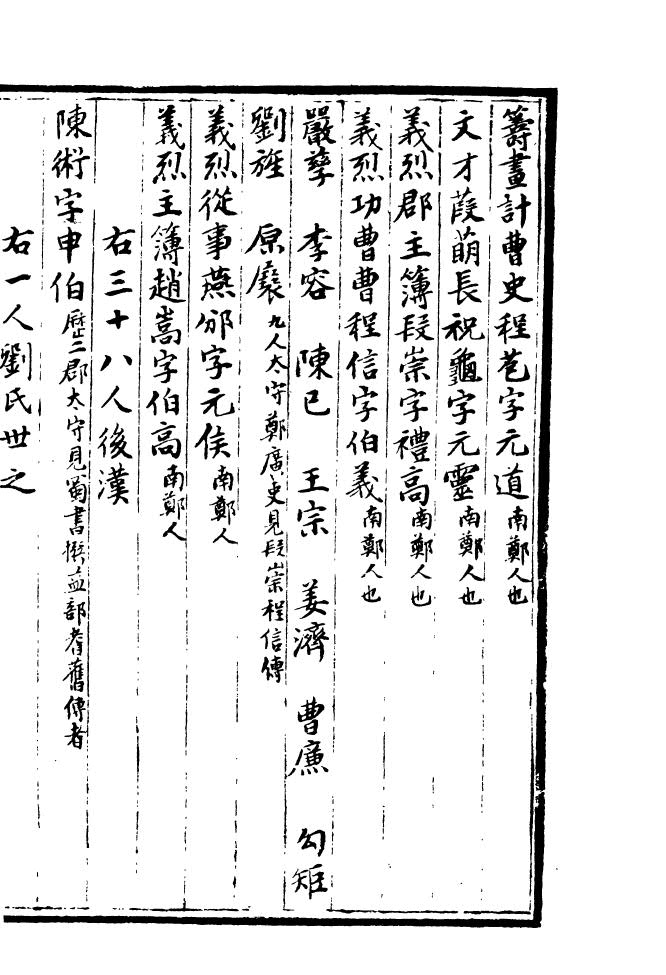 籌畫計曹史程苞字元道南鄭人也
文才葭萌長祝龜字元靈南鄭人也
義烈郡主簿段崇字禮高南鄭人也
義烈功曹曹程信字伯義南鄭人也
嚴孳　李容　陳已　王宗　姜濟　曹廉　勾矩
劉旌　原展九人太守鄭廑吏見段崇程信傳
義烈從事燕邠字元侯南鄭人
義烈主簿趙嵩字伯高南鄭人
右三十八人後漢
陳術字申伯歷二郡太守見蜀書撰益部耆舊傳者
右一人劉氏世之